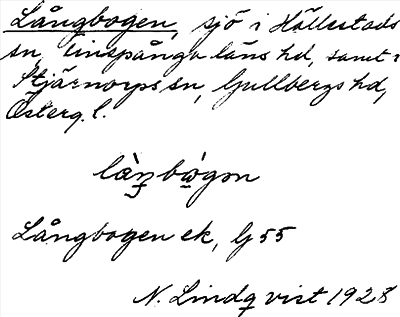 Långbogen, sjö i Hällestads
sn, Finspånga läns hd, samt i
Stjärnorps sn, Gullbergs hd,
Österg. l.
låŋbogən
Långbogen ek, G 55
N. Lindqvist 1928